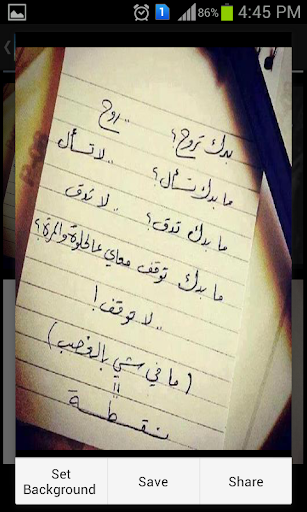 86% 4:45 PM
1
بدك تروح؟ ..روح
ما بدك تسأل؟ ..لا تسأل
ما بدك تدق؟ ..لا تدق
ما بدك توقف معاي عالحلوة والمرة؟
..لا توقف!
(ما في شي بالغصب)
=
نقطة
Set Background
Save
Share